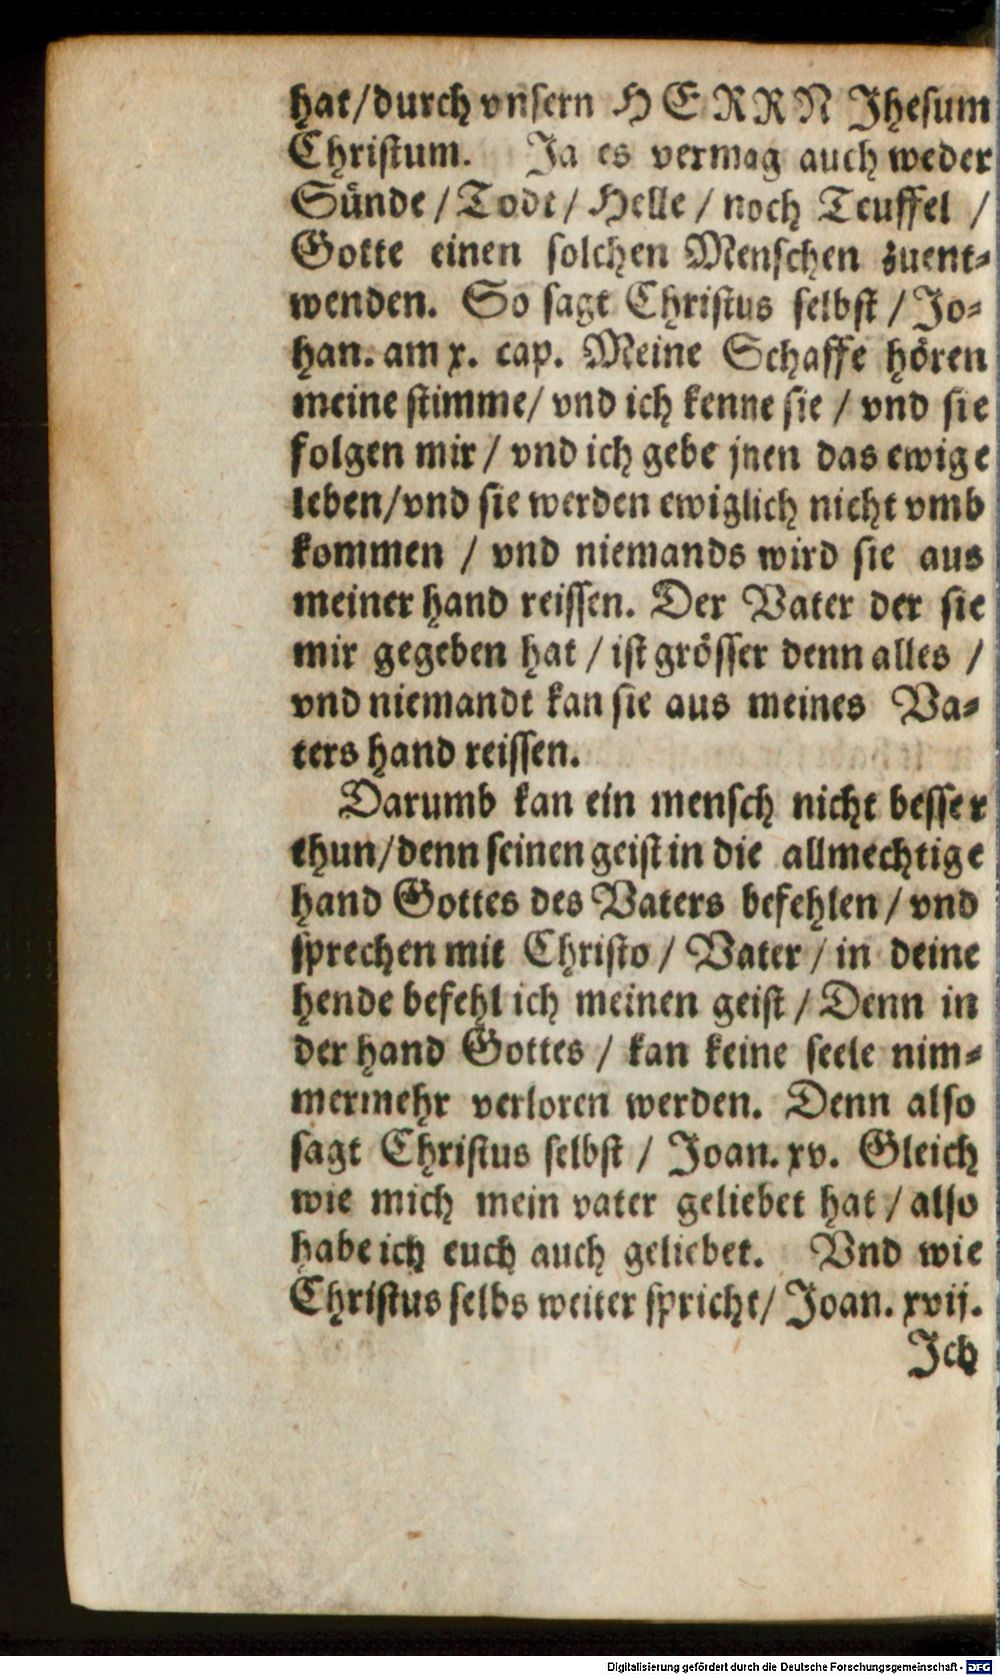 hat/durch vnſern HERRN Jheſum
Chriſtum. Ja es vermag auch weder
Sünde / Todt / Helle / noch Teuffel /
Gotte einen ſolchen Menſchen zuent⸗
wenden. So ſagt Chriſtus ſelbſt / Jo⸗
han. am x. cap. Meine Schaffe hören
meine ſtimme/ vnd ich kenne ſie / vnd ſie
folgen mir / vnd ich gebe jnen das ewige
leben/vnd ſie werden ewiglich nicht vmb
kommen / vnd niemands wird ſie aus
meiner hand reiſſen. Der Vater der ſie
mir gegeben hat / iſt gröſſer denn alles /
vnd niemandt kan ſie aus meines Va⸗
ters hand reiſſen.
Darumb kan ein menſch nicht beſſer
thun/denn ſeinen geiſt in die allmechtige
hand Gottes des Vaters befehlen / vnd
ſprechen mit Chriſto / Vater / in deine
hende befehl ich meinen geiſt / Denn in
der hand Gottes / kan keine ſeele nim⸗
mermehr verloren werden. Denn alſo
ſagt Chriſtus ſelbſt / Joan. xv. Gleich
wie mich mein vater geliebet hat / alſo
habe ich euch auch geliebet. Vnd wie
Chriſtus ſelbs weiter ſpricht/ Joan. xvij.
Jch
Digitalisierung gefördert durch die Deutsche Forschungsgemeinschaft - DFG